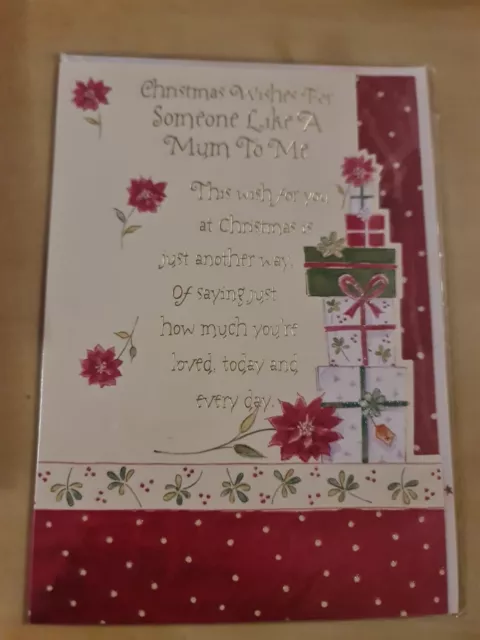 Christmas Wishes For
Someone Like A
Mum To Me
This wish for you
at Christmas is
just another way,
Of saying just
how much you're
loved, today and
every day.